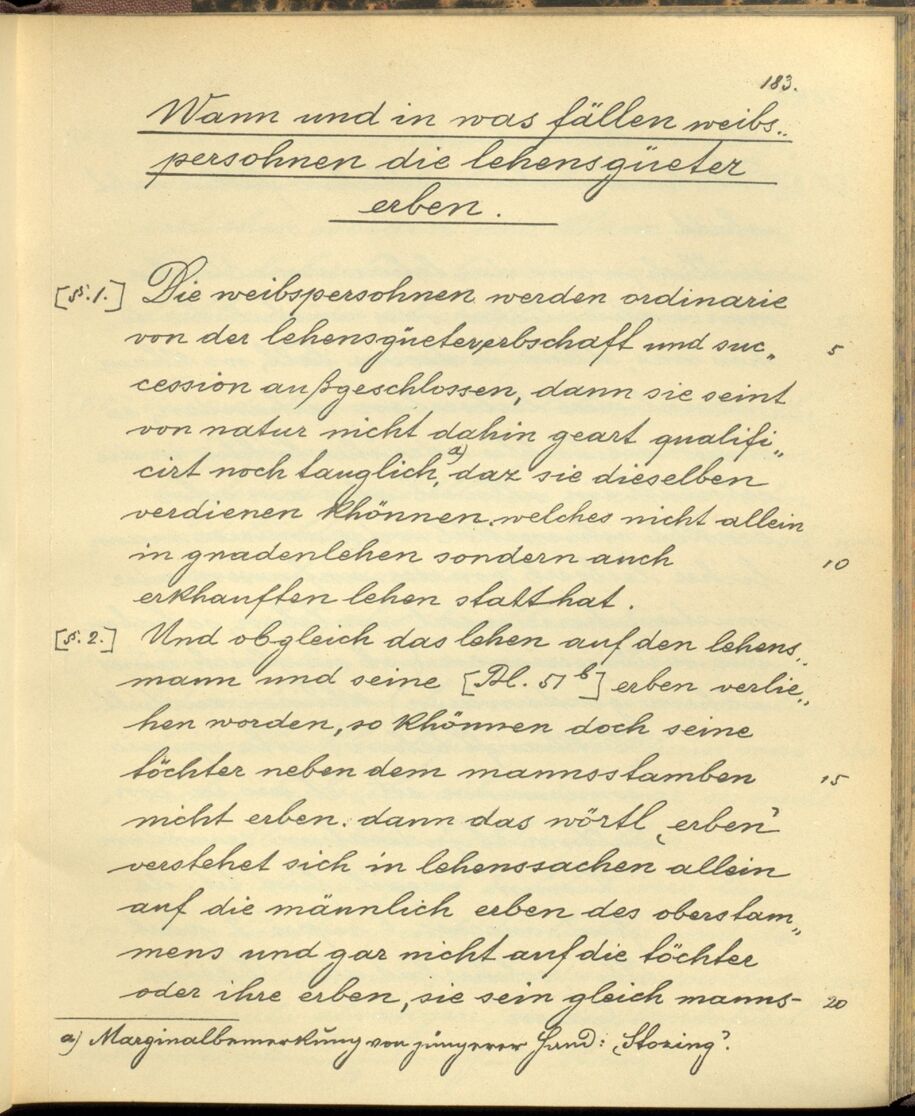 183.
Wann und in was fällen weibs„
persohnen die lehensgüeter
erben.
[§.1.] Die weibspersohnen werden ordinarie
von der lehensgüetererbschaft und suc„ 5
cession außgeschlossen, dann sie seint
von natur nicht dahin geart qualifi„
cirt noch tauglich,ᵃ⁾ daz sie dieselben
verdienen khönnen. welches nicht allein
in gnadenlehen sondern auch 10
erkhauften lehen statt hat.
[§.2.] Und obgleich das lehen auf den lehens„
mann und seine [Bl. 51ᵇ] erben verlie„
hen worden, so khönnen doch seine
töchter neben dem mannsstamben 15
nicht erben. dann das wörtl ‚erben’
verstehet sich in lehenssachen allein
auf die männlich erben des oberstam„
mens und gar nicht auf die töchter
oder ihre erben, sie sein gleich manns- 20
a) Marginalbemerkung von jüngerer Hand: ‚Stozing’.